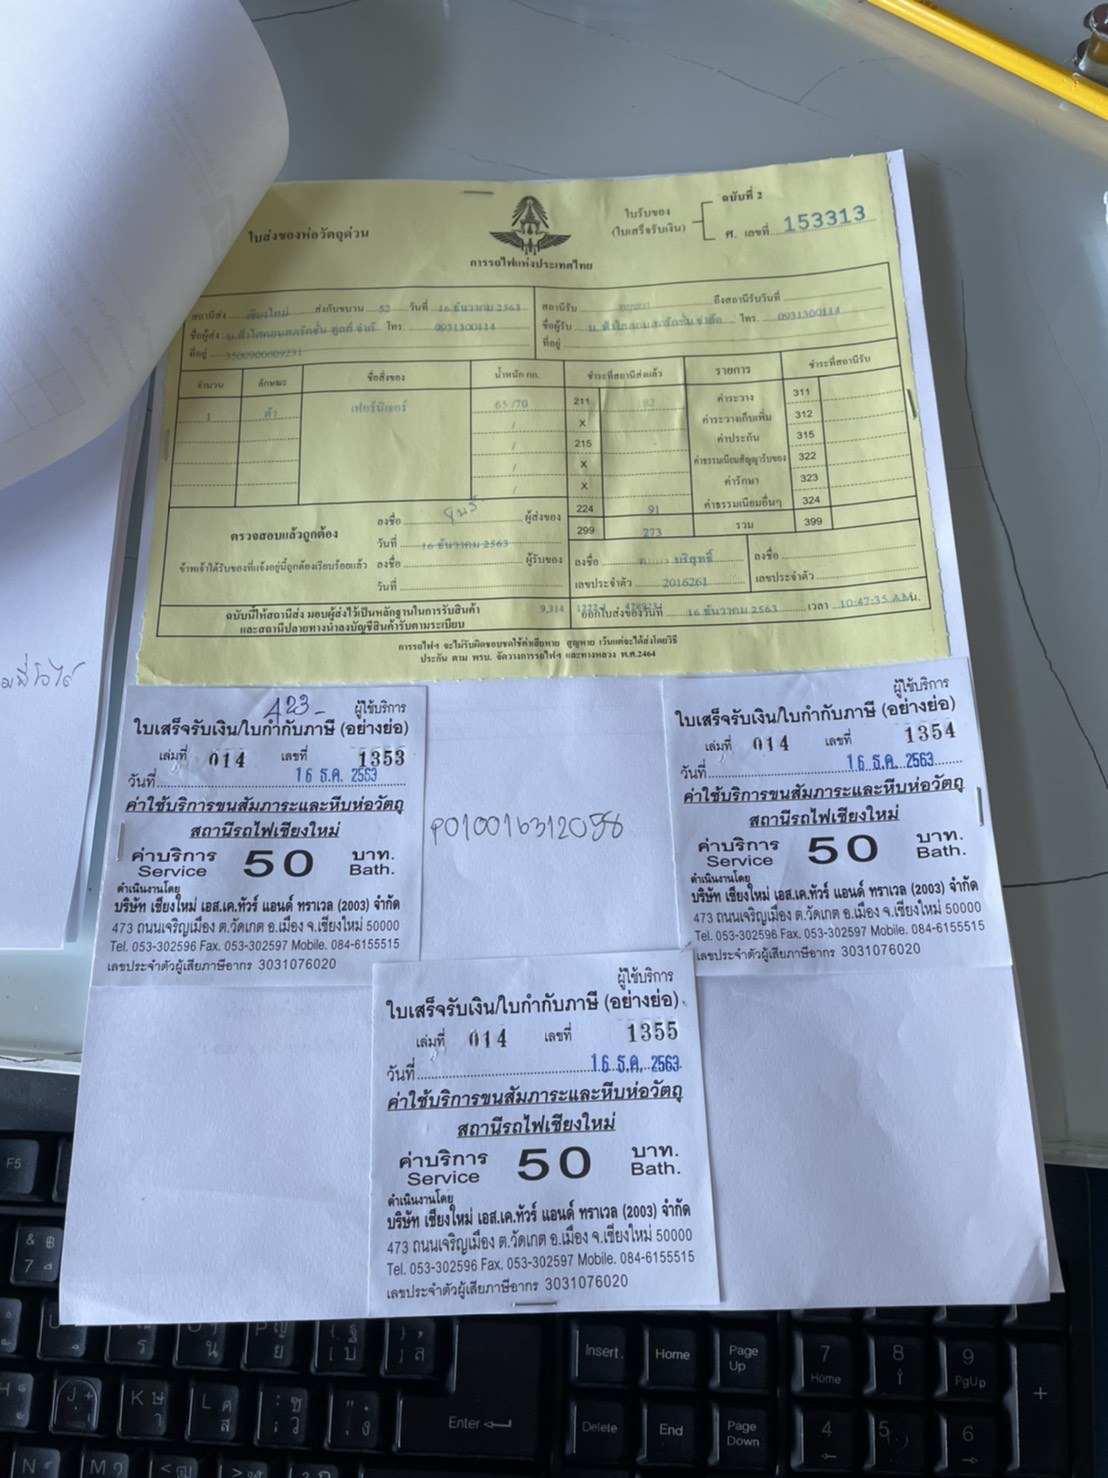 ใบส่งของห่อวัตถุด่วน
การรถไฟแห่งประเทศไทย
ใบรับของ
(ใบเสร็จรับเงิน)
ฉบับที่ 2
ศ. เลขที่ 153313
สถานีส่ง เชียงใหม่ ส่งกับขบวน 52 วันที่ 16 ธันวาคม 2563
ชื่อผู้ส่ง โทร 0931300114
ที่อยู่ 3500900009231
สถานีรับ อยุธยา ถึงสถานีรับวันที่
ชื่อผู้รับ โทร. 0931300114
ที่อยู่
จำนวน ลักษณะ ชื่อสิ่งของ น้ำหนัก กก. ชำระที่สถานีส่งแล้ว รายการ ชำระที่สถานีรับ
1 ตัว เฟอร์นิเจอร์ 65/70 211 182 ค่าระวาง 311
X ค่าระวางเก็บเพิ่ม 312
215 - ค่าประกัน 315
X ค่าธรรมเนียมสัญญารับของ 322
X ค่ารักษา 323
224 91 ค่าธรรมเนียมอื่นๆ 324
299 273 รวม 399
ตรวจสอบแล้วถูกต้อง ลงชื่อ ผู้ส่งของ
วันที่ 16 ธันวาคม 2563
ข้าพเจ้าได้รับของที่แจ้งอยู่นี้ถูกต้องเรียบร้อยแล้ว ลงชื่อ ผู้รับของ
วันที่
ลงชื่อ บริสุทธิ์
เลขประจำตัว 2016261
ลงชื่อ
เลขประจำตัว
ฉบับนี้ให้สถานีส่ง มอบผู้ส่งไว้เป็นหลักฐานในการรับสินค้า
และสถานีปลายทางนำลงบัญชีสินค้ารับตามระเบียบ
9,314
ออกใบส่งของวันที่ 16 ธันวาคม 2563 เวลา 10:47:35 AM น.
การรถไฟฯ จะไม่รับผิดชอบชดใช้ค่าเสียหาย สูญหาย เว้นแต่จะได้ส่งโดยวิธี
ประกัน ตาม พรบ. จัดวางการรถไฟฯ และทางหลวง พ.ศ.2464
423-
ผู้ใช้บริการ
ใบเสร็จรับเงิน/ใบกำกับภาษี (อย่างย่อ)
เล่มที่ 014 เลขที่ 1353
วันที่ 16 ธ.ค. 2563
ค่าใช้บริการขนสัมภาระและหีบห่อวัตถุ
สถานีรถไฟเชียงใหม่
ค่าบริการ 50 บาท.
Service Bath.
ดำเนินงานโดย
บริษัท เชียงใหม่ เอส.เค.ทัวร์ แอนด์ ทราเวล (2003) จำกัด
473 ถนนเจริญเมือง ต.วัดเกต อ.เมือง จ.เชียงใหม่ 50000
Tel. 053-302596 Fax. 053-302597 Mobile. 084-6155515
เลขประจำตัวผู้เสียภาษีอากร 3031076020
P010016312058
ผู้ใช้บริการ
ใบเสร็จรับเงิน/ใบกำกับภาษี (อย่างย่อ)
เล่มที่ 014 เลขที่ 1354
วันที่ 16 ธ.ค. 2563
ค่าใช้บริการขนสัมภาระและหีบห่อวัตถุ
สถานีรถไฟเชียงใหม่
ค่าบริการ 50 บาท.
Service Bath.
ดำเนินงานโดย
บริษัท เชียงใหม่ เอส.เค.ทัวร์ แอนด์ ทราเวล (2003) จำกัด
473 ถนนเจริญเมือง ต.วัดเกต อ.เมือง จ.เชียงใหม่ 50000
Tel. 053-302596 Fax. 053-302597 Mobile. 084-6155515
เลขประจำตัวผู้เสียภาษีอากร 3031076020
ผู้ใช้บริการ
ใบเสร็จรับเงิน/ใบกำกับภาษี (อย่างย่อ)
เล่มที่ 014 เลขที่ 1355
วันที่ 16 ธ.ค. 2563
ค่าใช้บริการขนสัมภาระและหีบห่อวัตถุ
สถานีรถไฟเชียงใหม่
ค่าบริการ 50 บาท.
Service Bath.
ดำเนินงานโดย
บริษัท เชียงใหม่ เอส.เค.ทัวร์ แอนด์ ทราเวล (2003) จำกัด
473 ถนนเจริญเมือง ต.วัดเกต อ.เมือง จ.เชียงใหม่ 50000
Tel. 053-302596 Fax. 053-302597 Mobile. 084-6155515
เลขประจำตัวผู้เสียภาษีอากร 3031076020
F5
Insert Home Page Up 7 Home 8 9 PgUp +
Enter Delete End Page Down 4 5 6